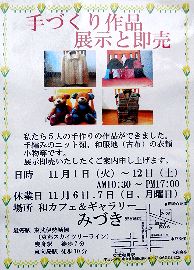 手づくり作品
展示と即売
私たち5人の手作りの作品ができました。
手編みのニット類、和服地(古布)の衣類
小物等です。
展示即売いたしたくご案内申し上げます。
日時 11月1日(火)～12日(土)
AM10:30 ～ PM17:00
休業日 11月6日、7日(日、月曜日)
場所 和カフェ&ギャラリー
みづき
最寄駅 東武伊勢崎線